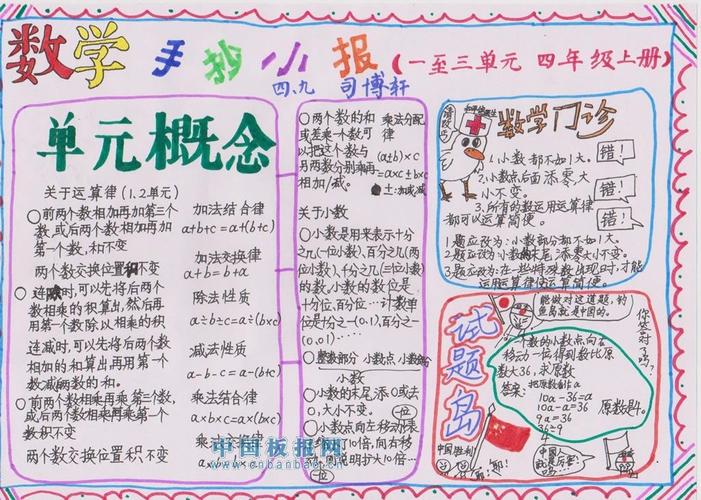 数学 手抄小报（一至三单元 四年级上册）
四、九 司博轩
单元概念
关于运算律（1、2单元）
○前两个数相加再加第三个
数，或后两个数相加再加
第一个数，和不变
两个数交换位置和不变
加法结合律
a+b+c=a+(b+c)
加法交换律
a+b=b+a
连除时，可以先将后两个
数相乘的积算出，然后再
用第一个数除以相乘的积
除法性质
a÷b÷c=a÷(b×c)
连减时，可以先将后两个数
相加的和算出再用第一个
数减两数的和。
减法性质
a-b-c=a-(b+c)
○前两个数相乘再乘第三个数，
或后两个数相乘再乘第一个
数积不变
乘法结合律
a×b×c=a×(b×c)
两个数交换位置积不变
乘法交换律
○两个数的和
或差乘一个数可
以把这个数与
另两数分别乘再
相加/减。
乘法分配
律
(a±b)×c
=a×c±b×c
±:加或减
关于小数
○小数是用来表示十分
之几(一位小数)、百分之几(两
位小数)、千分之几(三位小数)
的数，小数的数位是
十分位、百分位…计数单
位是十分之一(0.1)、百分之一
(0.01)…
○整数部分 小数点 小数部分
小数
○小数的末尾添0或去
0，大小不变。
○小数点向左移动，
缩小10倍，向右移
扩大10倍…
数学门诊
请改正
1.小数都不如1大。
错！
2.小数点后面添零大
小不变。
错！
3.所有的数运用运算律
都可以运算简便。
错！
1题应改为：小数部分都不如1大。
2题应改为小数的末尾添零大小不变。
3题应改为：在一些特殊数出现时，才能
运用运算律使运算简便。
试题岛
能做对这道题，钓
鱼岛就是中国的。
你答对了吗？
一个数的小数点向右
移动一位得到数比原
数大36，求原数
答案：把原数看作a
10a-36=a
10a-a=36
9a=36
36÷9
4
原数是4。
中国胜利！
耶！
中国板报网
www.cnbanbao.cn